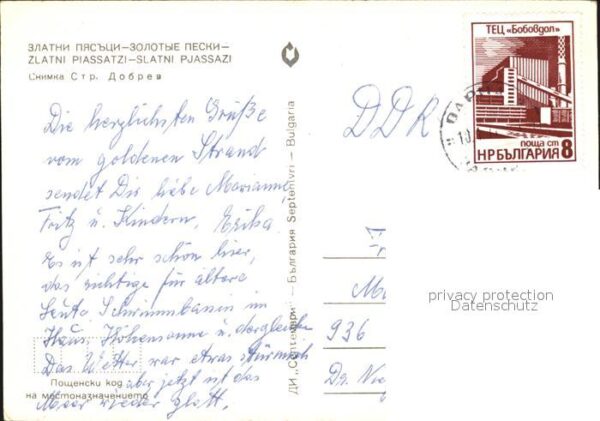 ЗЛАТНИ ПЯСЪЦИ—ЗОЛОТЫЕ ПЕСКИ—
ZLATNI PIASSATZI—SLATNI PJASSAZI
Снимка Стр. Добрев
Die herzlichsten Grüße
vom goldenen Strand
sendet Dir liebe Marianne,
Fritz u. Kindern, Erika.
Es ist sehr schön hier,
das richtige für ältere
Leute Schwimmbassin im
Haus, Höhensonne u. dergleichen
Das Wetter war etwas stürmisch
aber jetzt ist das
Meer wieder glatt.
Пощенски код
на местоназначението
ДИ „Септември“ — България Septemvri — Bulgaria
DDR
ТЕЦ «Бобовдол»
поща ст
НРБЪЛГАРИЯ 8
936
privacy protection
Datenschutz